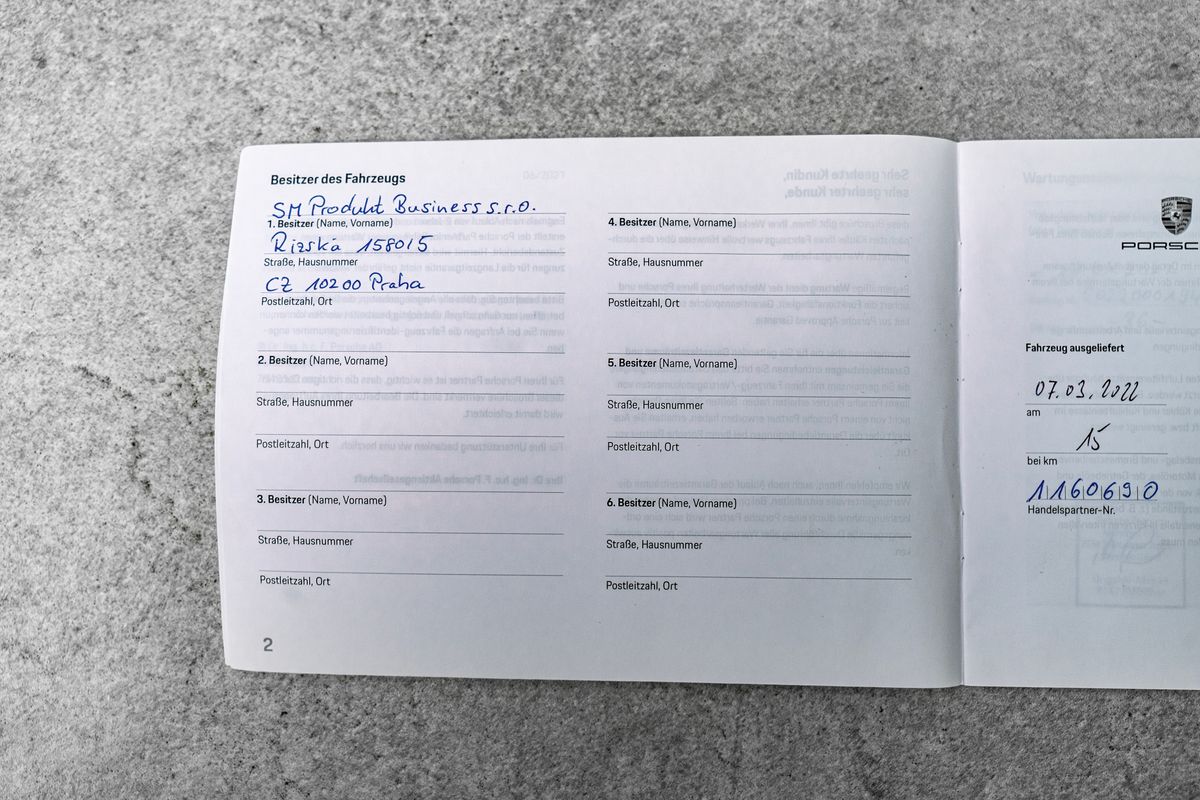 Besitzer des Fahrzeugs
SM Produkt Business s.r.o.
1. Besitzer (Name, Vorname)
Rizská 1580/5
Straße, Hausnummer
CZ 10200 Praha
Postleitzahl, Ort
2. Besitzer (Name, Vorname)
Straße, Hausnummer
Postleitzahl, Ort
3. Besitzer (Name, Vorname)
Straße, Hausnummer
Postleitzahl, Ort
2
4. Besitzer (Name, Vorname)
Straße, Hausnummer
Postleitzahl, Ort
5. Besitzer (Name, Vorname)
Straße, Hausnummer
Postleitzahl, Ort
6. Besitzer (Name, Vorname)
Straße, Hausnummer
Postleitzahl, Ort
PORSC
Fahrzeug ausgeliefert
07.03.2022
am
15
bei km
1160690
Handelspartner-Nr.